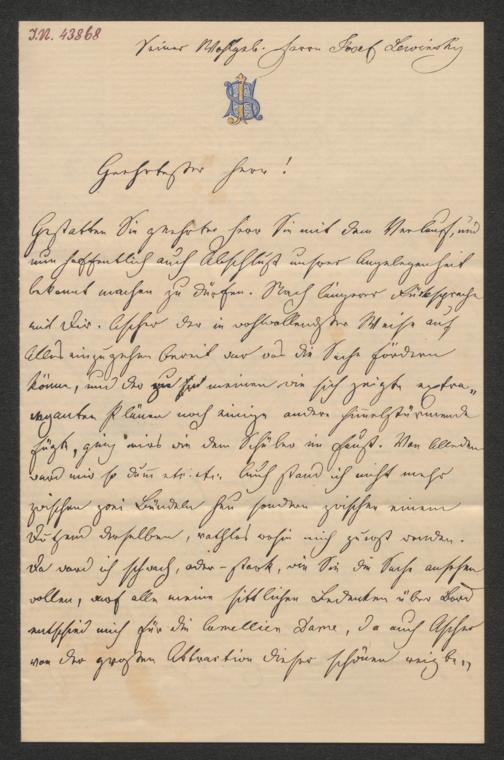 I.N. 43868
Seiner Wohlgeb. Herrn Josef Lewinsky
Geehrtester Herr!
Gestatten Sie geehrter Herr Sie mit dem Verlauf, und
nun hoffentlich auch Abschluß unsrer Angelegenheit
bekannt machen zu dürfen. Nach längerer Rücksprache
mit Dir. Ascher der in wohlwollendster Weise auf
Alles einzugehen bereit war was die Sache fördern
könne, und der zu meinen wie sich zeigte extra-
vaganten Plänen noch einige andere himmelstürmende
fügte, ging's mir wie dem Schüler im Faust. Von alledem
ward mir so dumm etc. etc. Auch stand ich nicht mehr
zwischen zwei Bündeln Heu sondern zwischen einem
Dutzend derselben, rathlos wohin mich zuerst wenden.
Da ward ich schwach, oder – stark, wie Sie die Sache ansehen
wollen, warf alle meine sittlichen Bedenken über Bord
entschied mich für die Camellien Dame, da auch Ascher
von der großen Attraction dieser schönen